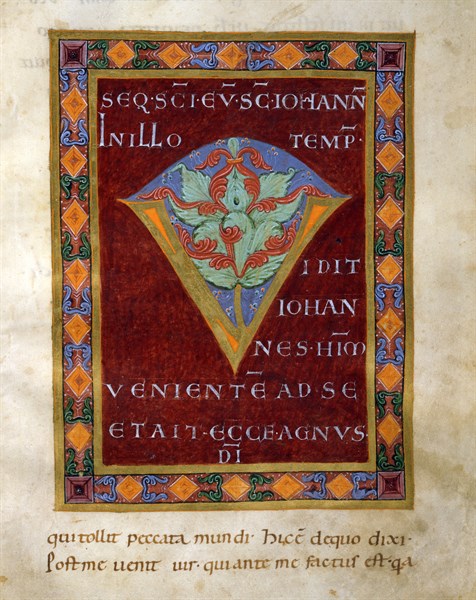 SEQ·SC̄I·EV̄·SC̄·IOHANN̄
IN ILLO TEMP̄·
VIDIT
IOHAN
NES·HIM̄
VENIENTĒ AD SE
ET AIT·ECCE AGNVS·
D̄I
qui tollit peccata mundi· hic ē de quo dixi·
Post me uenit uir· qui ante me factus est· q̄a